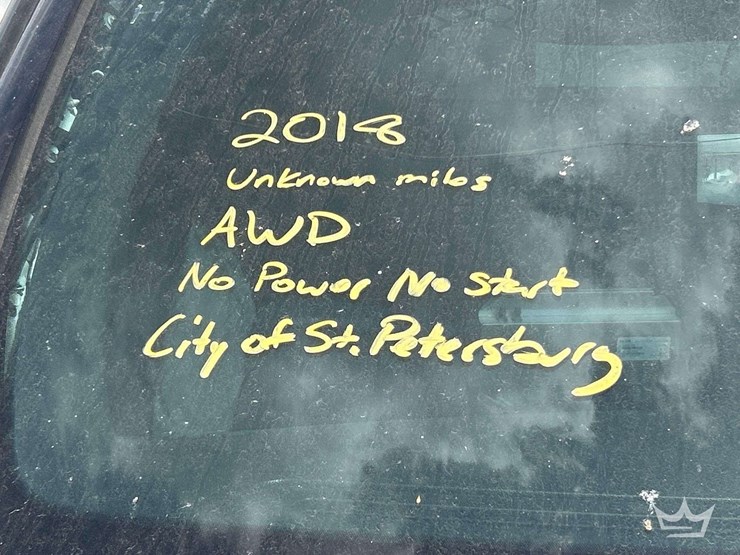 2018
Unknown miles
AWD
No Power No Start
City of St. Petersburg